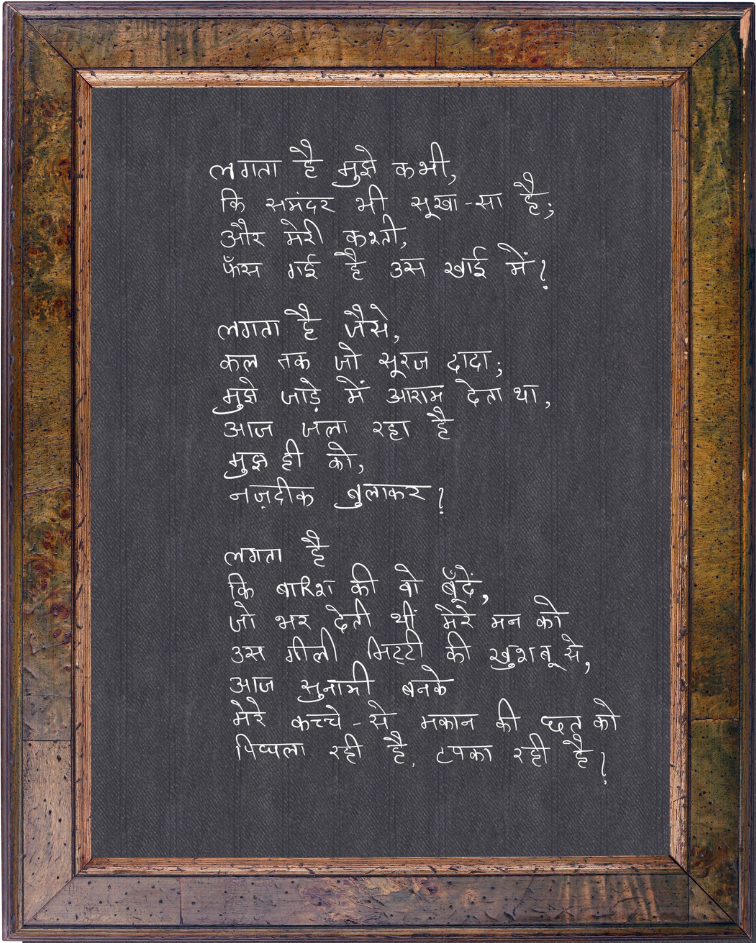 लगता है मुझे कभी,
कि समंदर भी सूखा-सा है;
और मेरी कश्ती,
फँस गई है उस खाई में।
लगता है जैसे,
कल तक जो सूरज दादा;
मुझे जाड़े में आराम देता था,
आज जला रहा है
मुझ ही को,
नज़दीक बुलाकर।
लगता है
कि बारिश की वो बूँदें,
जो भर देती थीं मेरे मन को
उस गीली मिट्टी की खुशबू से,
आज सुनामी बनके
मेरे कच्चे-से मकान की छत को
पिघला रही है, टपका रही है।